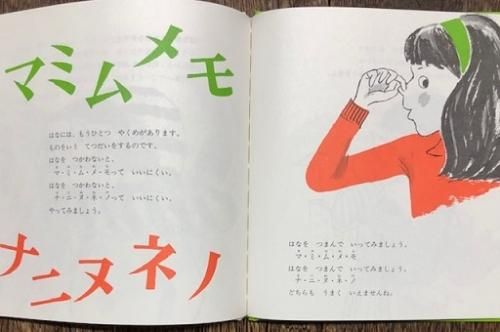 マミムメモ
はなには、もうひとつ やくめがあります。
ものをいう てつだいをするのです。
はなを つかわないと、
マ・ミ・ム・メ・モって いいにくい。
はなを つかわないと、
ナ・ニ・ヌ・ネ・ノって いいにくい。
やってみましょう。
ナニヌネノ
はなを つまんで いってみましょう。
マ・ミ・ム・メ・モ
はなを つまんで いってみましょう。
ナ・ニ・ヌ・ネ・ノ
どちらも うまく いえませんね。